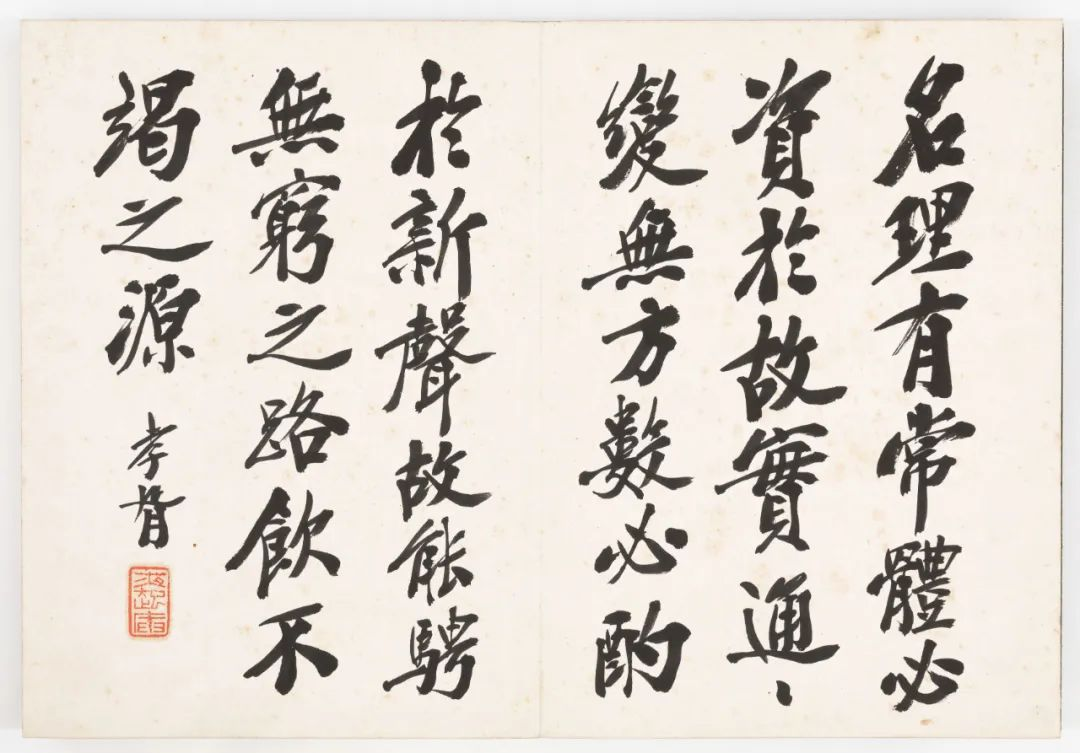 名理有常體必
資於故實通、
變無方數必酌
於新聲故能騁
無窮之路飲不
竭之源
孝胥